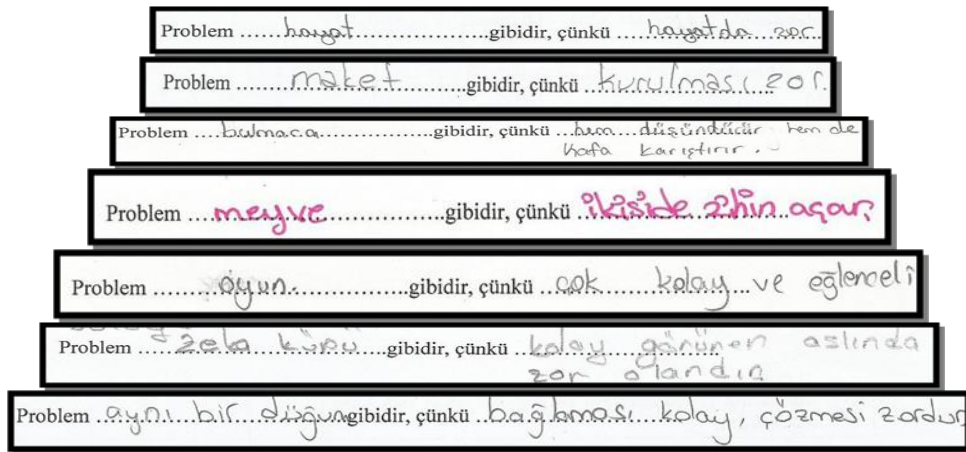 Problem ......hayat....................gibidir, çünkü ....hayatda zor..
Problem ........maket............gibidir, çünkü ..kurulması zor.
Problem ....bulmaca..................gibidir, çünkü ...hem...düşündücür hem de
kafa karıştırır.
Problem ....meyve..................gibidir, çünkü ikiside zihin açar,
Problem .........oyun.................gibidir, çünkü çok kolay ve eğlenceli
Problem .....zeka küpü....gibidir, çünkü kolay görünen aslında
zor olandır
Problem ..aynı bir düğüm gibidir, çünkü ..bağlaması kolay, çözmesi zordur,